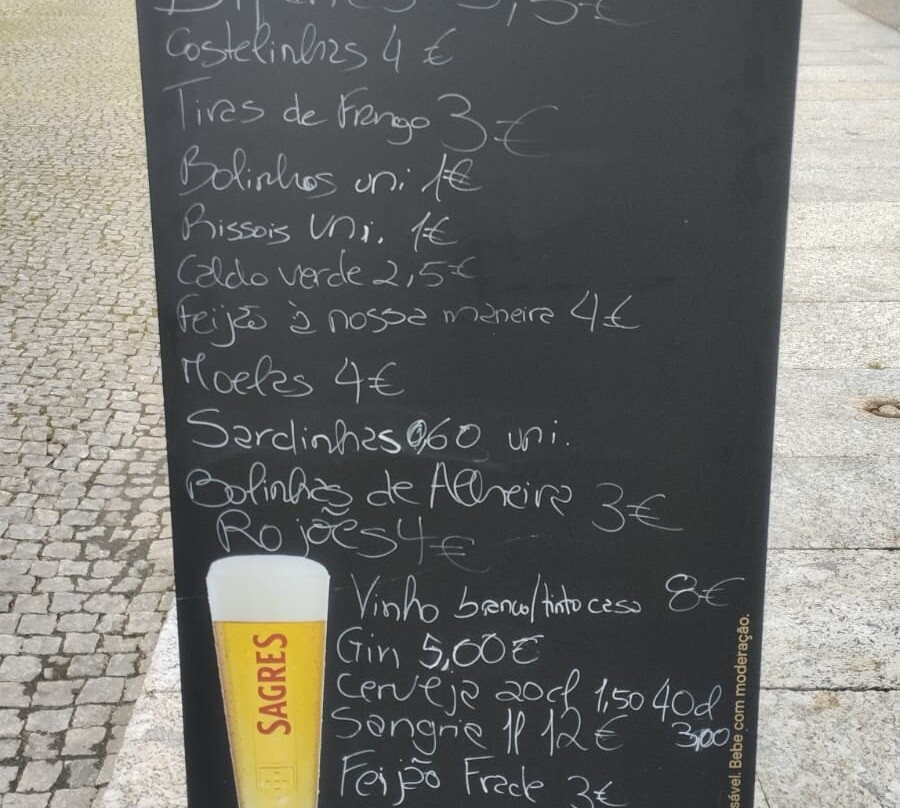 3,5€
Costelinhas 4 €
Tiras de Frango 3€
Bolinhos uni 1€
Rissois Uni. 1€
Caldo verde 2,5€
Feijão à nossa maneira 4€
Moelas 4€
Sardinhas 060 uni.
Bolinhas de Alheira 3€
Rojões 4€
Vinho branco/tinto casa 8€
Gin 5,00€
Cerveja 20cl 1,50 40cl
3,00
Sangria 1l 12€
Feijão Frade 3€
SAGRES
sável. Bebe com moderação.